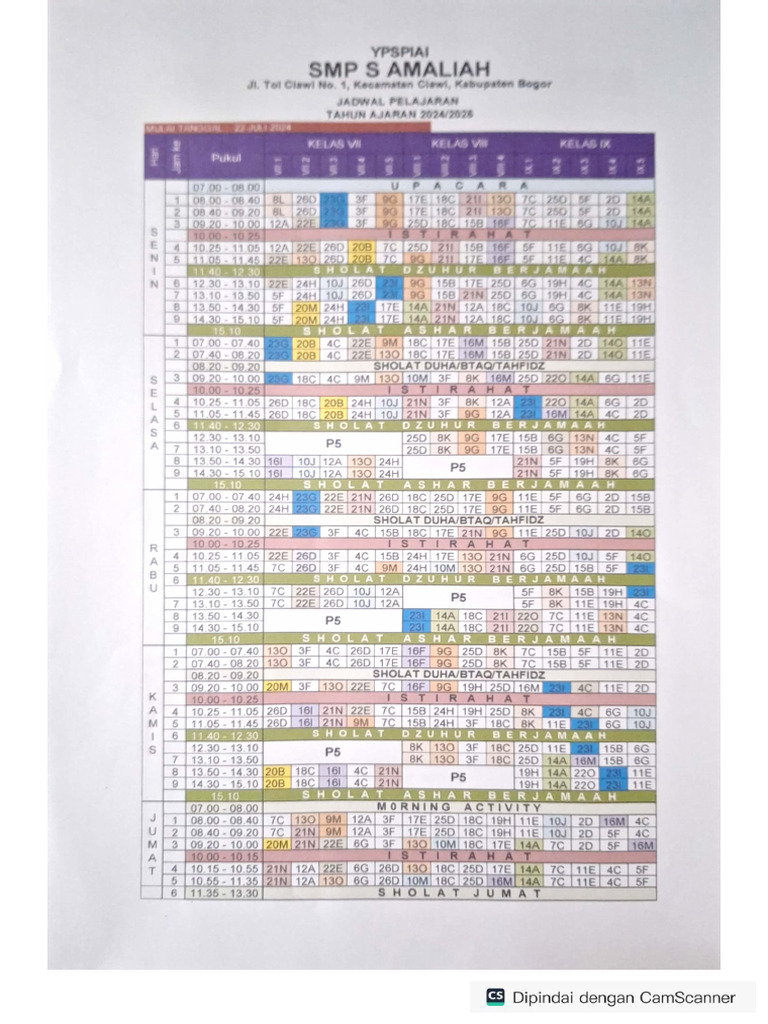 YPSPIAI
SMP S AMALIAH
Jl. Tol Ciawi No. 1, Kecamatan Ciawi, Kabupaten Bogor
JADWAL PELAJARAN
TAHUN AJARAN 2024/2025
MULAI TANGGAL 22 JULI 2024
Hari Jam ke Pukul KELAS VII KELAS VIII KELAS IX
VII.1 VII.2 VII.3 VII.4 VII.5 VIII.1 VIII.2 VIII.3 VIII.4 IX.1 IX.2 IX.3 IX.4 IX.5
SENIN
07.00 - 08.00 U P A C A R A
1 08.00 - 08.40 8L 26D 23G 3F 9G 17E 18C 21I 13O 7C 25D 5F 2D 14A
2 08.40 - 09.20 8L 26D 23G 3F 9G 17E 18C 21I 13O 7C 25D 5F 2D 14A
3 09.20 - 10.00 12A 22E 23G 3F 9G 25D 18C 15B 16F 7C 11E 6G 10J 14A
10.00 - 10.25 I S T I R A H A T
4 10.25 - 11.05 12A 22E 26D 20B 7C 25D 21I 15B 16F 5F 11E 6G 10J 8K
5 11.05 - 11.45 22E 13O 26D 20B 7C 9G 21I 17E 16F 5F 11E 4C 14A 8K
11.40 - 12.30 SHOLAT DZUHUR BERJAMAAH
6 12.30 - 13.10 22E 24H 10J 26D 23I 9G 15B 17E 25D 6G 19H 4C 14A 13N
7 13.10 - 13.50 5F 24H 10J 26D 23I 9G 15B 21N 25D 6G 19H 4C 14A 13N
8 13.50 - 14.30 5F 20M 24H 23I 17E 14A 21N 12A 18C 10J 6G 8K 11E 19H
9 14.30 - 15.10 5F 20M 24H 23I 17E 14A 21N 12A 18C 10J 6G 8K 11E 19H
15.10 SHOLAT ASHAR BERJAMAAH
SELASA
1 07.00 - 07.40 23G 20B 4C 22E 9M 18C 17E 16M 15B 25D 21N 2D 14O 11E
2 07.40 - 08.20 23G 20B 4C 22E 13O 18C 17E 16M 15B 25D 21N 2D 14O 11E
08.20 - 09.20 SHOLAT DUHA/BTAQ/TAHFIDZ
3 09.20 - 10.00 23G 18C 4C 9M 13O 10M 3F 8K 16M 25D 22O 14A 6G 11E
10.00 - 10.25 I S T I R A H A T
4 10.25 - 11.05 26D 18C 20B 24H 10J 21N 3F 8K 12A 23I 22O 14A 6G 2D
5 11.05 - 11.45 26D 18C 20B 24H 10J 21N 3F 9G 12A 23I 16M 14A 4C 2D
6 11.40 - 12.30 SHOLAT DZUHUR BERJAMAAH
12.30 - 13.10 P5 25D 8K 9G 17E 15B 6G 13N 4C 5F
7 13.10 - 13.50 25D 8K 9G 17E 15B 6G 13N 4C 5F
8 13.50 - 14.30 16I 10J 12A 13O 24H P5 21N 5F 19H 8K 6G
9 14.30 - 15.10 16I 10J 12A 13O 24H 21N 5F 19H 8K 6G
15.10 SHOLAT ASHAR BERJAMAAH
RABU
1 07.00 - 07.40 24H 23G 22E 21N 26D 18C 25D 17E 9G 11E 5F 6G 2D 15B
2 07.40 - 08.20 24H 23G 22E 21N 26D 18C 25D 17E 9G 11E 5F 6G 2D 15B
08.20 - 09.20 SHOLAT DUHA/BTAQ/TAHFIDZ
3 09.20 - 10.00 22E 23G 3F 4C 15B 18C 17E 21N 9G 11E 25D 10J 2D 14O
10.00 - 10.25 I S T I R A H A T
4 10.25 - 11.05 22E 26D 3F 4C 15B 24H 17E 13O 21N 6G 25D 10J 5F 14O
5 11.05 - 11.45 7C 26D 3F 4C 9M 24H 10M 13O 21N 6G 25D 15B 5F 23I
6 11.40 - 12.30 SHOLAT DZUHUR BERJAMAAH
12.30 - 13.10 7C 22E 26D 10J 12A P5 5F 8K 15B 19H 23I
7 13.10 - 13.50 7C 22E 26D 10J 12A 5F 8K 11E 19H 4C
8 13.50 - 14.30 P5 23I 14A 18C 21I 22O 7C 11E 13N 4C
9 14.30 - 15.10 23I 14A 18C 21I 22O 7C 11E 13N 4C
15.10 SHOLAT ASHAR BERJAMAAH
KAMIS
1 07.00 - 07.40 13O 3F 4C 26D 17E 16F 9G 25D 8K 7C 15B 5F 11E 2D
2 07.40 - 08.20 13O 3F 4C 26D 17E 16F 9G 25D 8K 7C 15B 5F 11E 2D
08.20 - 09.20 SHOLAT DUHA/BTAQ/TAHFIDZ
3 09.20 - 10.00 20M 3F 13O 22E 7C 16F 9G 19H 25D 16M 23I 4C 11E 2D
10.00 - 10.25 I S T I R A H A T
4 10.25 - 11.05 26D 16I 21N 22E 7C 15B 24H 19H 25D 8K 23I 4C 6G 10J
5 11.05 - 11.45 26D 16I 21N 9M 7C 15B 24H 3F 18C 8K 11E 23I 6G 10J
6 11.40 - 12.30 SHOLAT DZUHUR BERJAMAAH
12.30 - 13.10 P5 8K 13O 3F 18C 25D 11E 23I 15B 6G
7 13.10 - 13.50 8K 13O 3F 18C 25D 14A 16M 15B 6G
8 13.50 - 14.30 20B 18C 16I 4C 21N P5 19H 14A 22O 23I 11E
9 14.30 - 15.10 20B 18C 16I 4C 21N 19H 14A 22O 23I 11E
15.10 SHOLAT ASHAR BERJAMAAH
JUMAT
07.00 - 08.00 M0RNING ACTIVITY
1 08.00 - 08.40 7C 13O 9M 12A 3F 17E 25D 18C 19H 11E 10J 2D 16M 4C
2 08.40 - 09.20 7C 21N 9M 12A 3F 17E 25D 18C 19H 11E 10J 2D 5F 4C
3 09.20 - 10.00 20M 21N 22E 6G 3F 13O 10M 18C 17E 14A 7C 2D 5F 16M
10.00 - 10.15 I S T I R A H A T
4 10.15 - 10.55 21N 12A 22E 6G 26D 13O 18C 25D 17E 14A 7C 11E 4C 5F
5 10.55 - 11.35 21N 12A 13O 6G 26D 10M 18C 25D 16M 14A 7C 11E 4C 5F
6 11.35 - 13.30 SHOLAT JUMAT
CS Dipindai dengan CamScanner